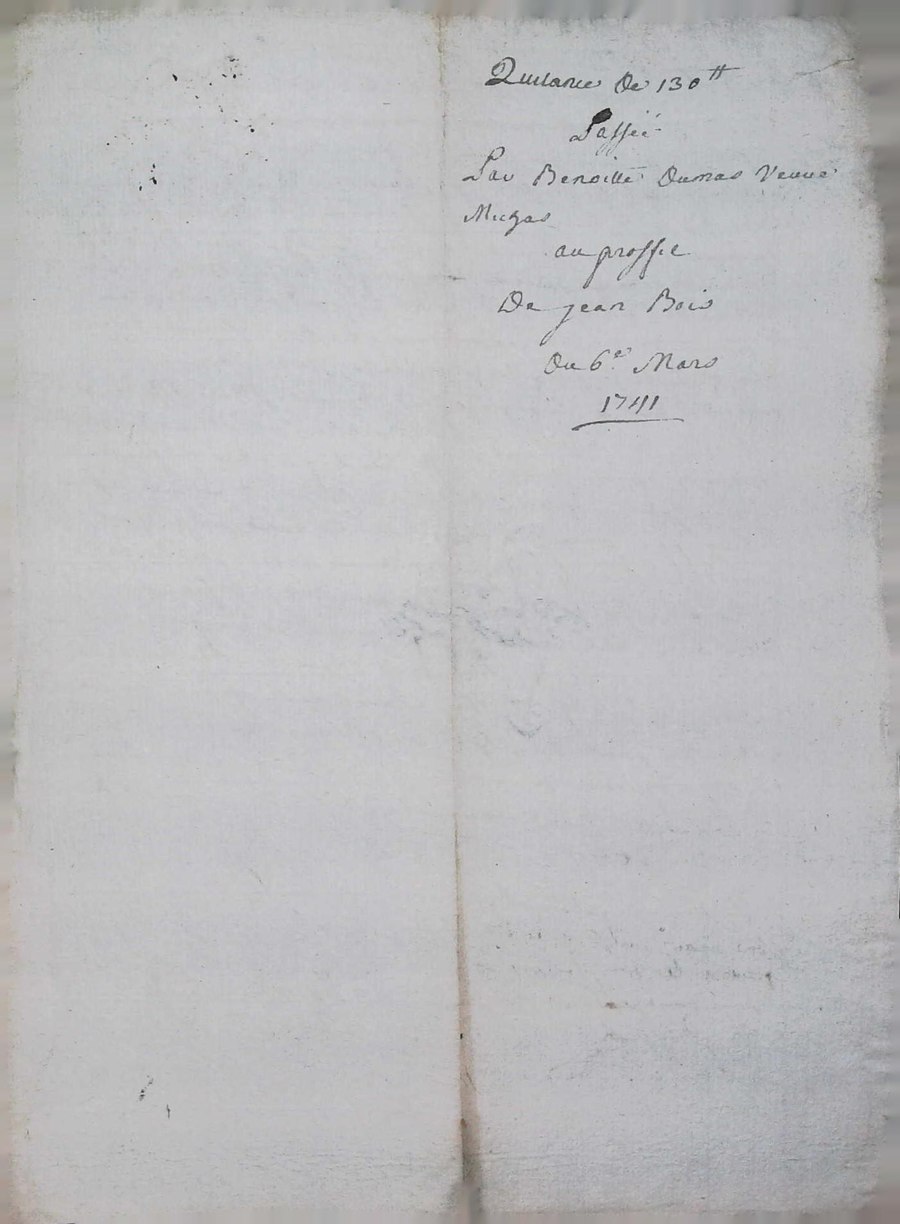 Quittance De 130tt
Passée
Par Benoitte Dumas Veuve
au proffit
De jean Bois
Du 6e. Mars
1741